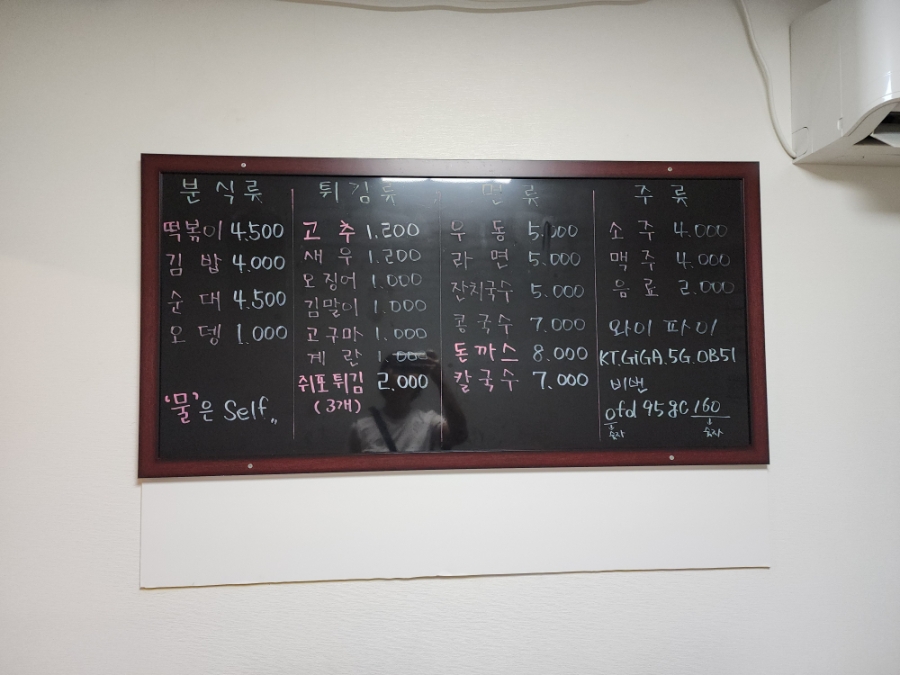 분식류
떡볶이 4.500
김밥 4.000
순대 4.500
오뎅 1.000
'물'은 Self〃
튀김류
고추 1.200
새우 1.200
오징어 1.000
김말이 1.000
고구마 1.000
계란 1.000
쥐포튀김 2.000
(3개)
면류
우동 5.000
라면 5.000
잔치국수 5.000
콩국수 7.000
돈까스 8.000
칼국수 7.000
주류
소주 4.000
맥주 4.000
음료 2.000
와이파이
KT.GiGA.5G.0B51
비번
0fd95gc160
숫자 숫자